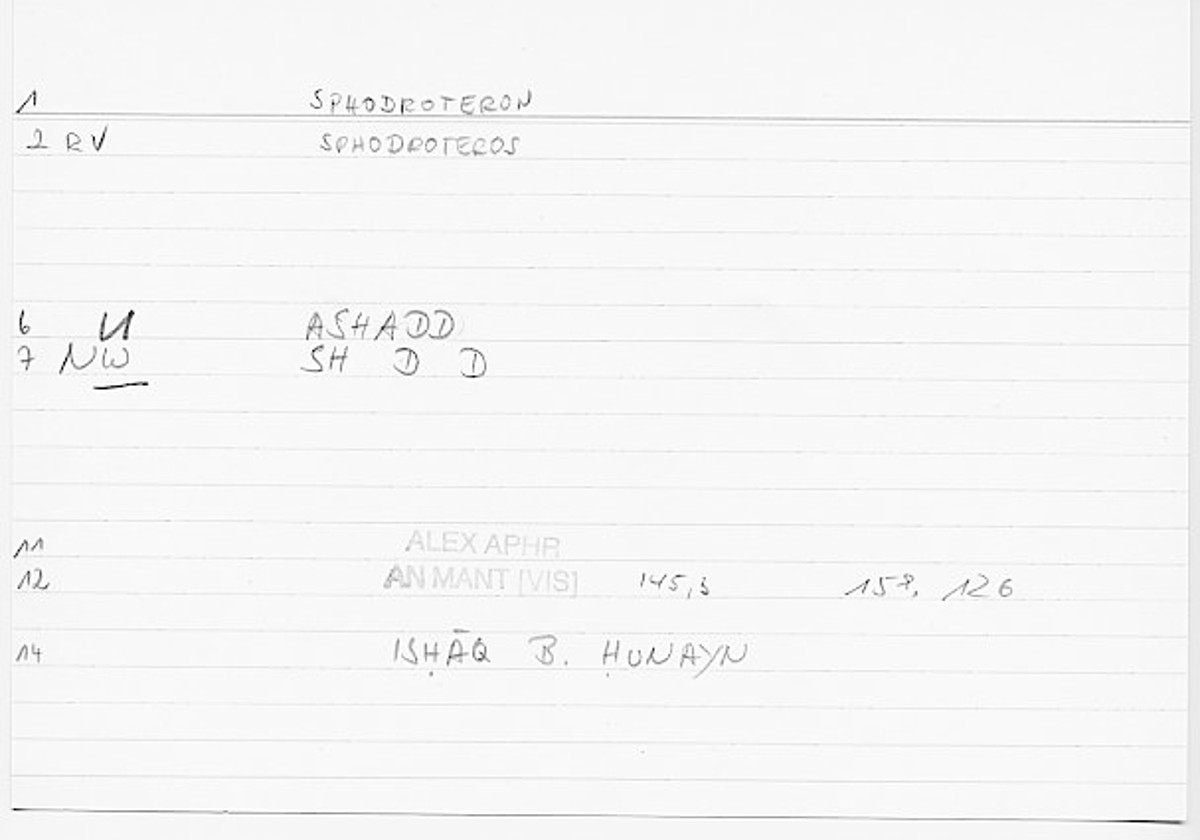 1 SPHODROTERON
2 RV SPHODROTEROS
6 U ASHADD
7 NW SH D D
11 ALEX APHR
12 AN MANT [VIS] 145,3 158, 126
14 ISḤĀQ B. ḤUNAYN